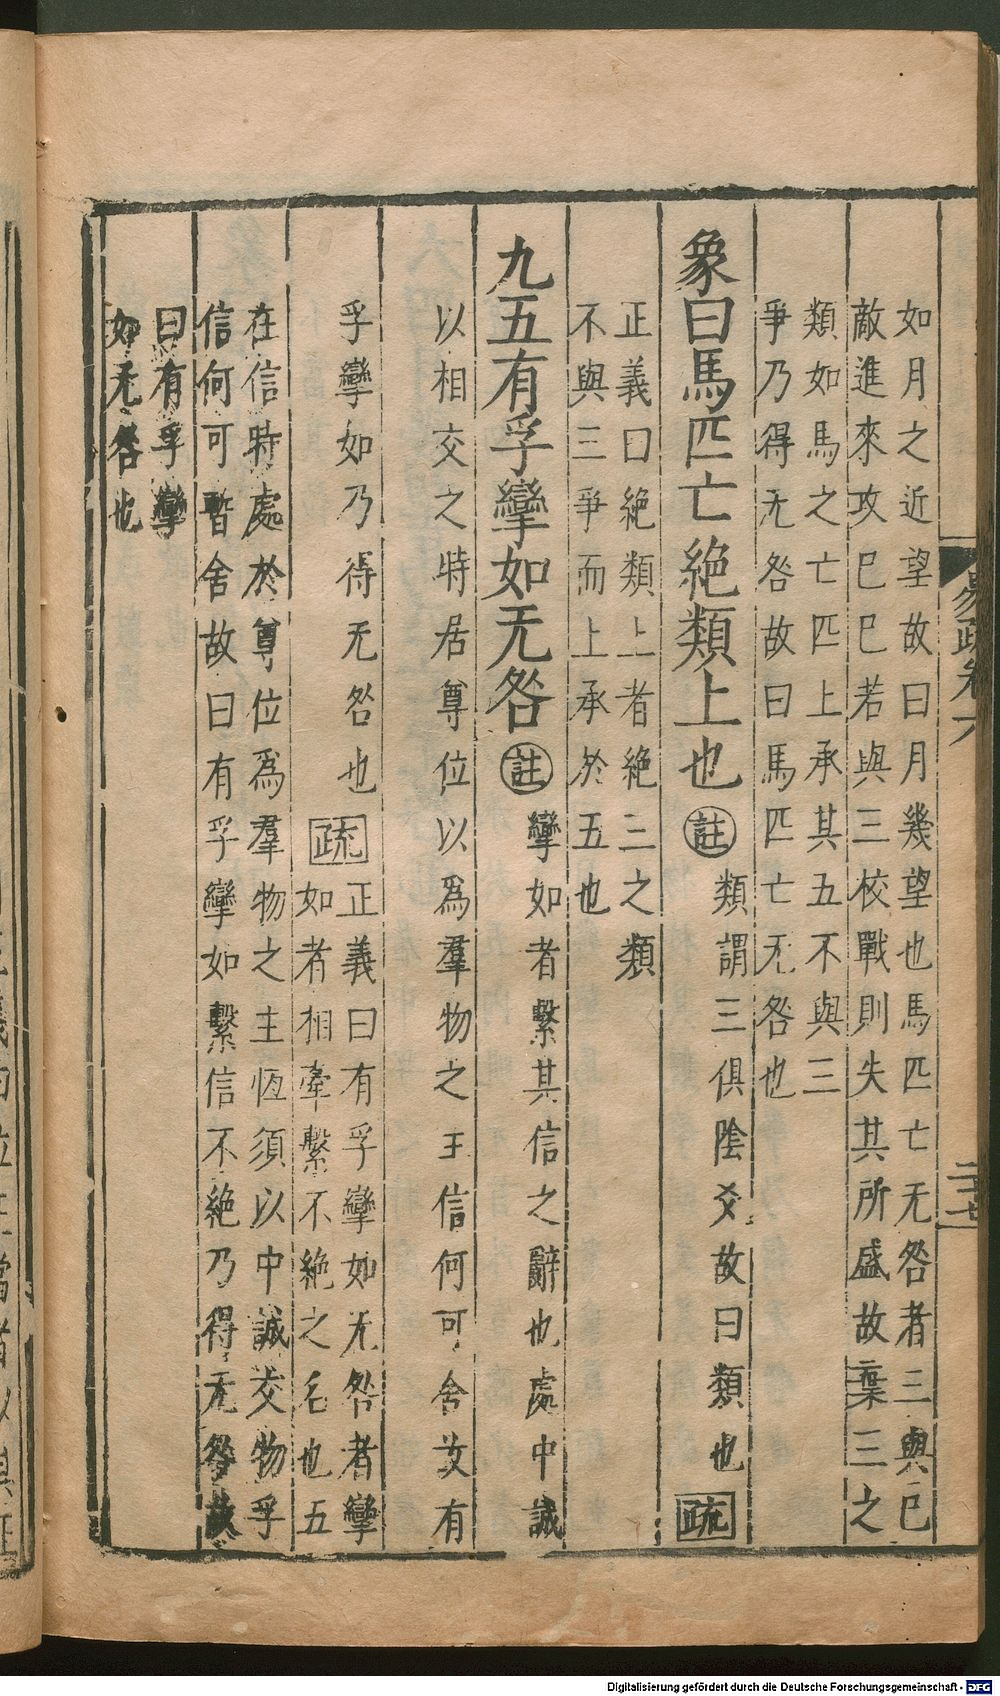 如月之近望故曰月幾望也馬匹亡无咎者三與已
敵進來攻已已若與三校戰則失其所盛故棄三之
類如馬之亡匹上承其五不與三
爭乃得无咎故曰馬匹亡无咎也
象曰馬匹亡絕類上也註類謂三俱陰爻故曰類也疏
正義曰絕類上者絕三之類
不與三爭而上承於五也
九五有孚攣如无咎註攣如者繫其信之辭也處中誠
以相交之時居尊位以為羣物之王信何可舍故有
孚攣如乃得无咎也疏
正義曰有孚攣如无咎者攣
如者相牽繫不絕之名也五
在信時處於尊位為羣物之主恆須以中誠交物孚
信何可暫舍故曰有孚攣如繫信不絕乃得无咎故
曰有孚攣
如无咎也
易疏卷六
二十七
Digitalisierung gefördert durch die Deutsche Forschungsgemeinschaft - DFG